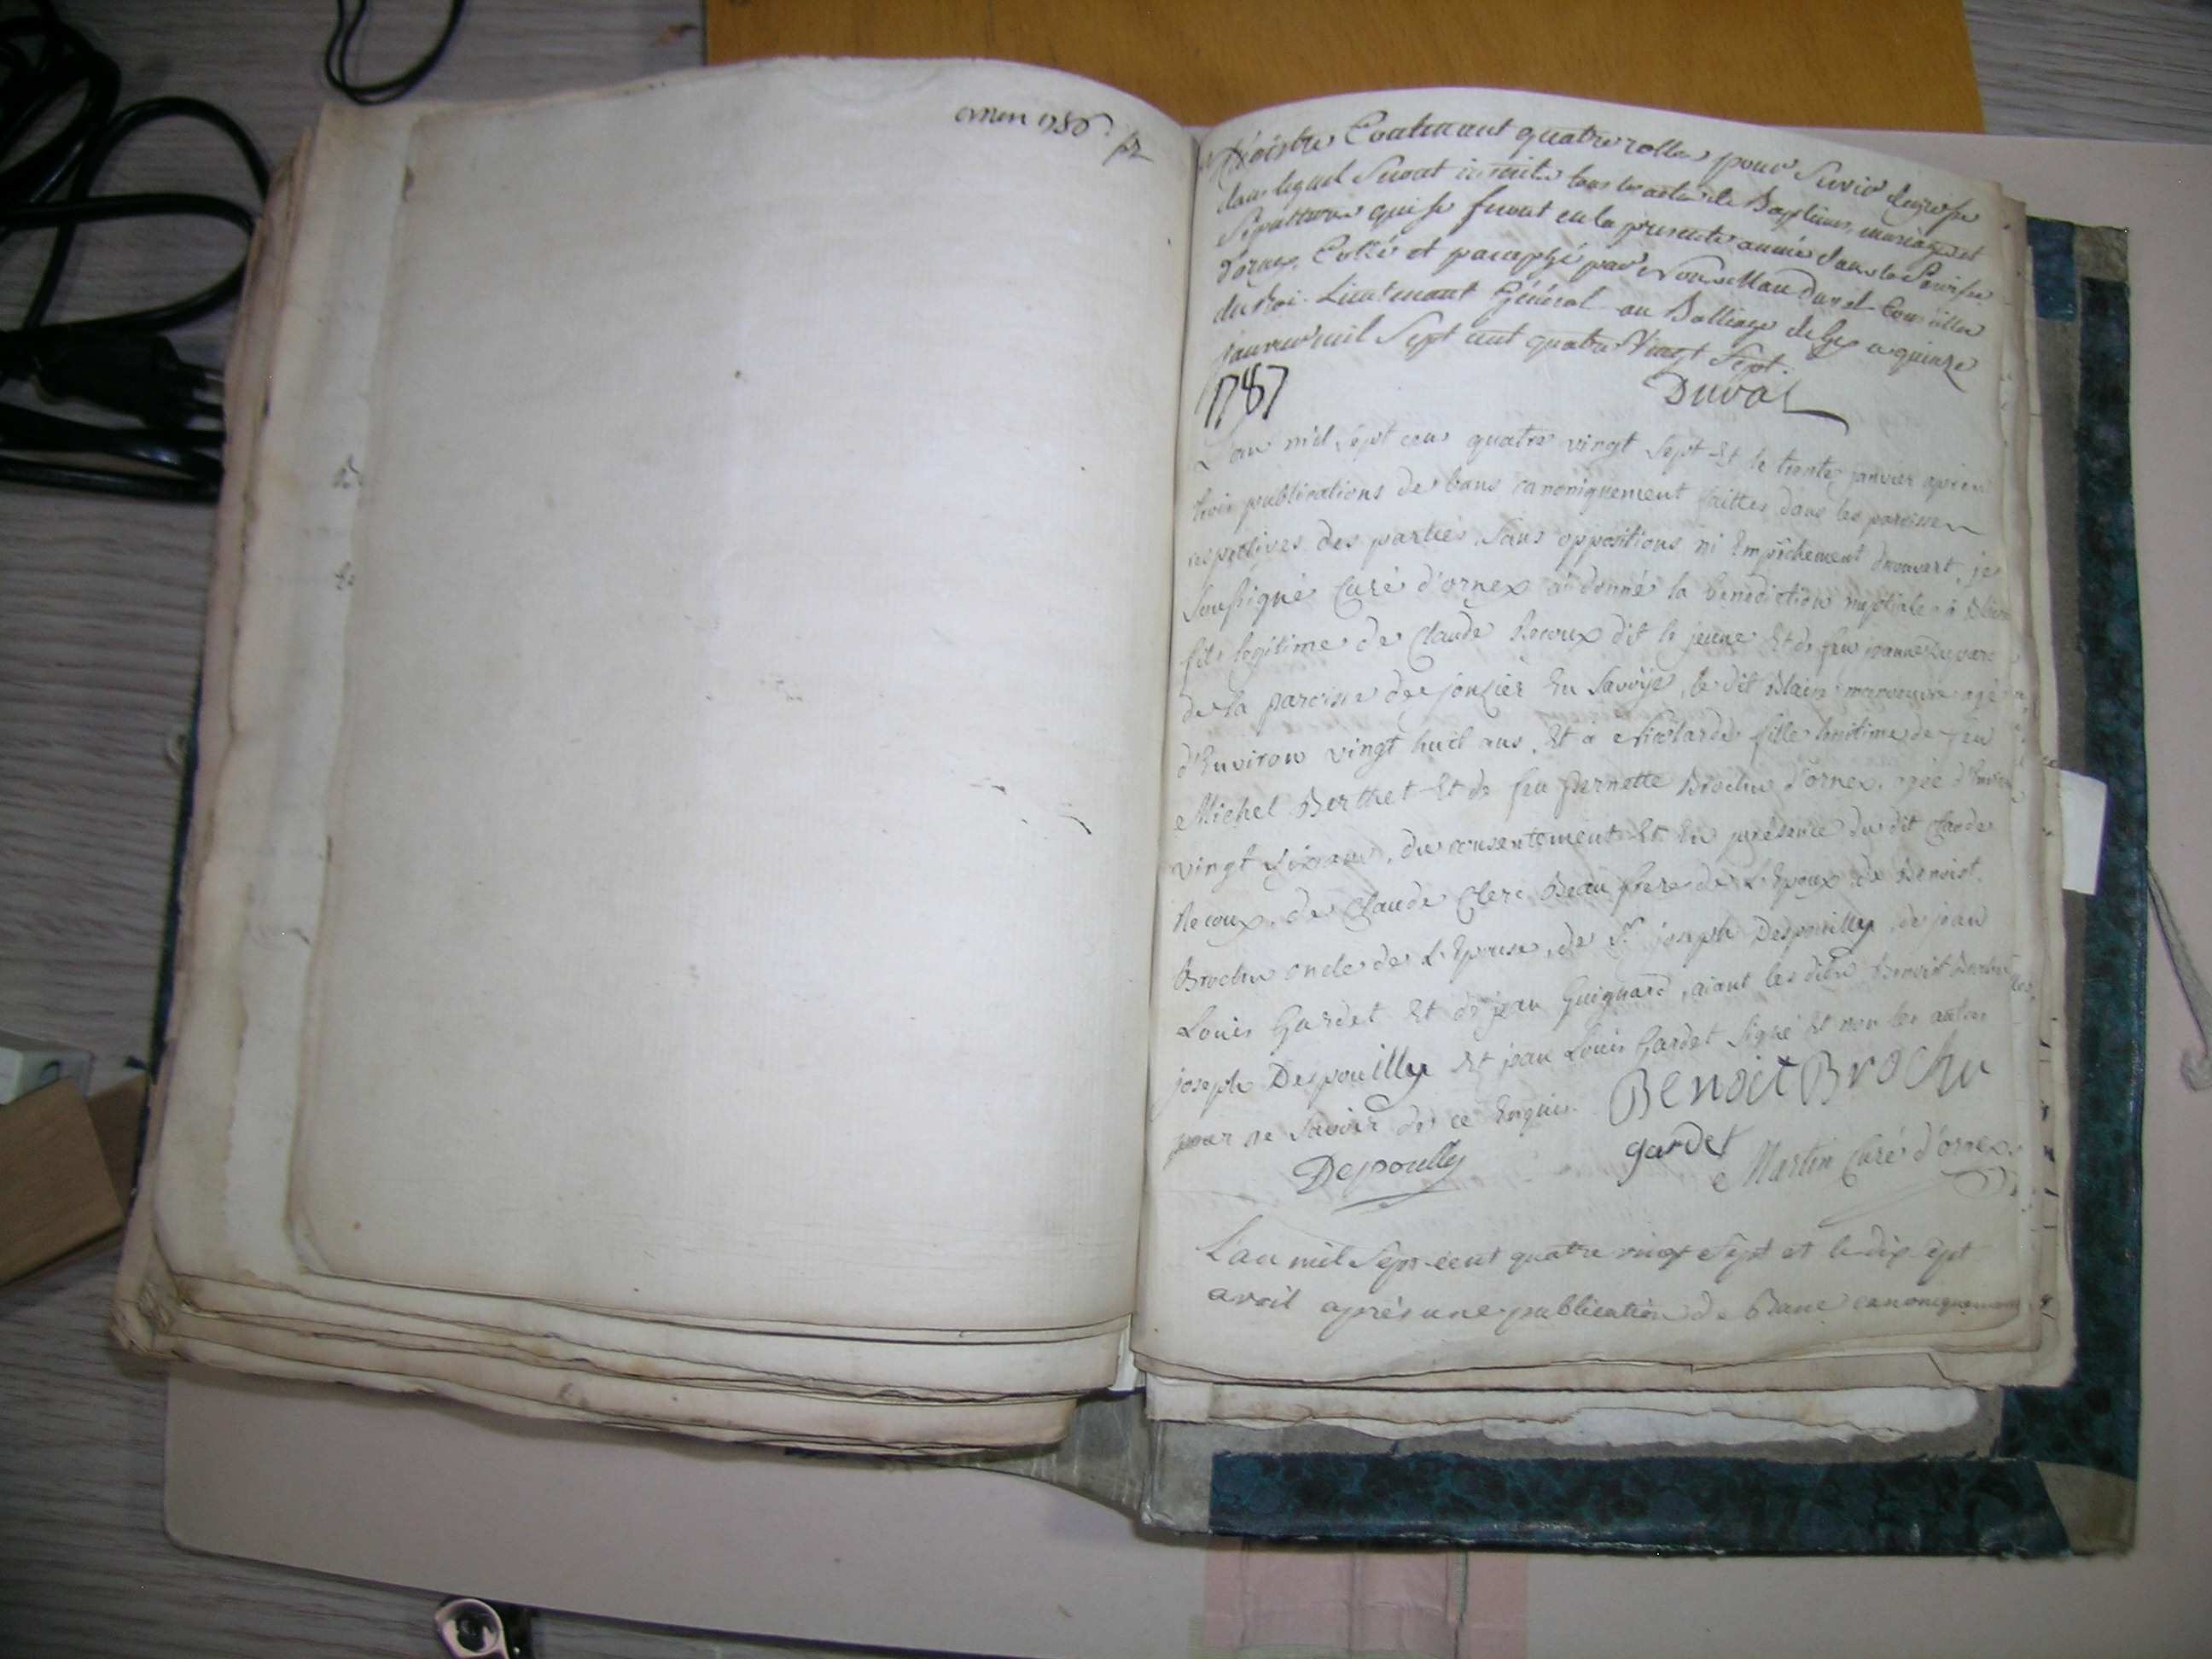 ornex 1786
Régistre Contenant quatre rolles pour Servir de grosse
dans lequel Seront inscrits tous les actes de Baptêmes, mariages et
Sépultures qui se feront en la presente année dans la Paroisse
d'ornex, Cotté et paraphé par Nous Duval Conseiller
du Roi Lieutenant Général au Balliage de Gex ce quinze
janvier mil Sept cent quatre Vingt Sept.
1787
Duval
L'an mil sept cens quatre vingt Sept Et le trente janvier après
trois publications de bans canoniquement faittes dans les paroisses
respectives des parties, Sans oppositions ni Empêchement decouvert, je
Soussigné Curé d'ornex ai donné la benediction nuptiale à Blaise
fils legitime de Claude Recoux dit le jeune Et de feu jeanne
de la paroisse de jonzier En Savoÿe, le dit Blaise manœuvre agé
d'Environ vingt huit ans, Et a Nicolarde fille legitime de feu
Michel Berthet Et de feu pernette Brochu d'ornex, agée d'Environ
vingt Six ans, du consentement Et En présence du dit Claude
Recoux, de Claude Clerc Beau frere de L'Epoux, de Benoist
Brochu oncle de L'Epouse, de Sr. joseph Despouilly, de jean
Louis Gardet Et de jean Guignard, aiant les dits Benoit Brochu
joseph Despouilly Et jean Louis Gardet Signé Et non les autres
pour ne Savoir de ce Enquis.
Benoit Brochu
Despoully
gardet
Martin Curé d'ornex
L'an mil Sept cent quatre vingt Sept et le dix Sept
avril après une publication de Banc canoniquement